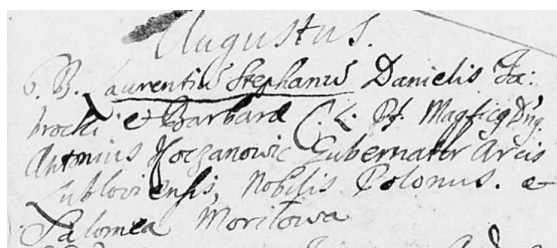 Augustus.
6. B. Laurentius Stephanus Danielis Ja:
brocki & Barbara C. L. Pf. Magficq Dng.
Antonius Koczanowic Gubernator Arcis
Lubloviensis, Nobilis Polonus. &
Salomea Moritowa